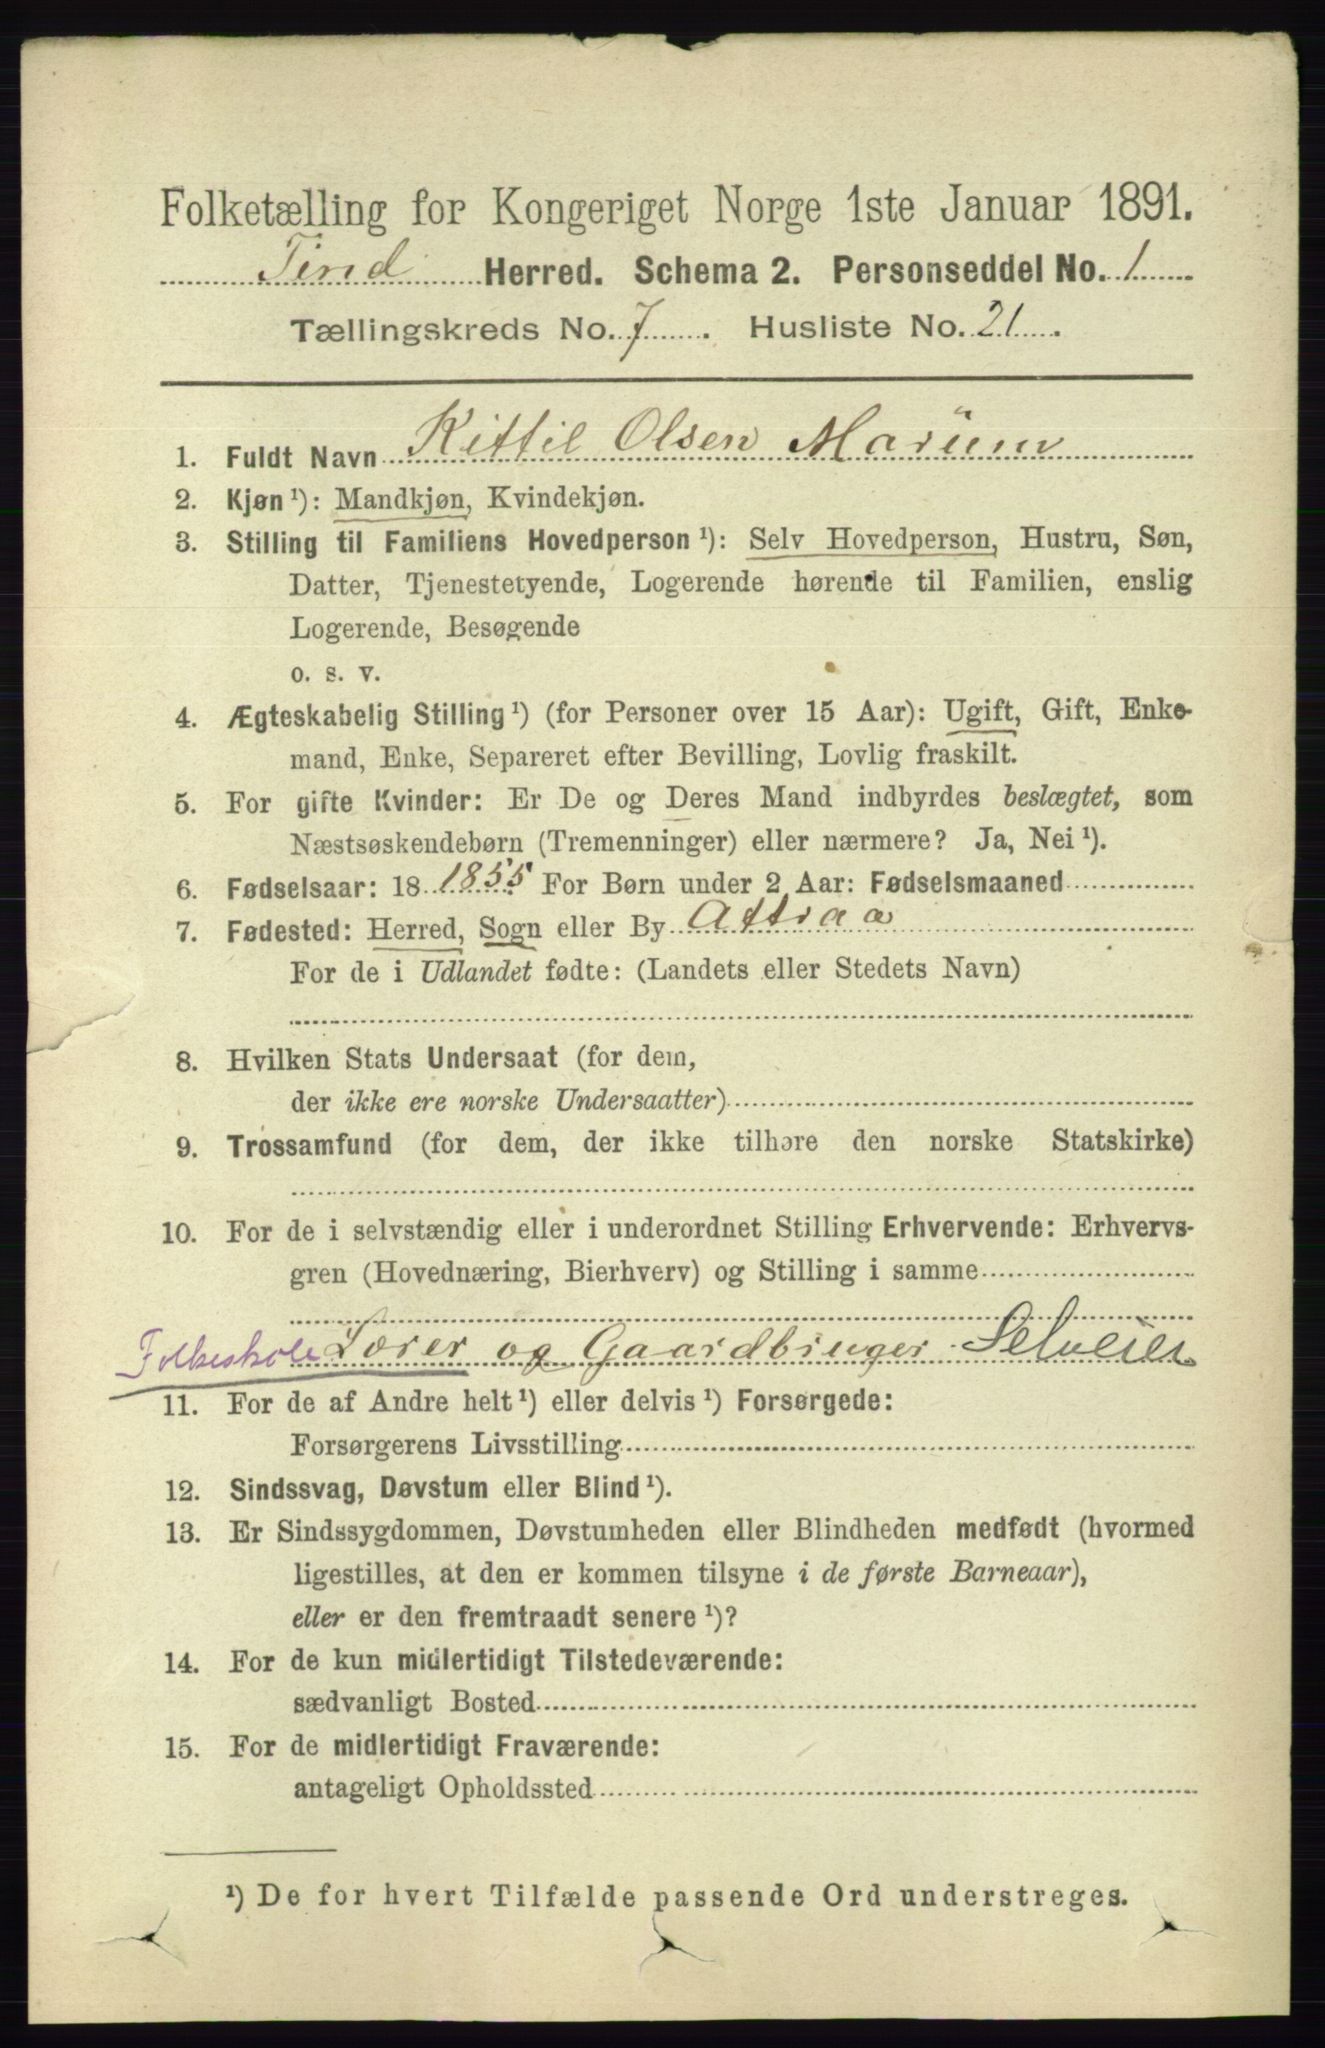 Folketælling for Kongeriget Norge 1ste Januar 1891.
Tind Herred. Schema 2. Personseddel No. 1
Tællingskreds No. 7. Husliste No. 21.
1. Fuldt Navn Kittil Olsen Marüm
2. Kjøn ¹): Mandkjøn, Kvindekjøn.
3. Stilling til Familiens Hovedperson ¹): Selv Hovedperson, Hustru, Søn,
Datter, Tjenestetyende, Logerende hørende til Familien, enslig
Logerende, Besøgende
o. s. v.
4. Ægteskabelig Stilling ¹) (for Personer over 15 Aar): Ugift, Gift, Enke-
mand, Enke, Separeret efter Bevilling, Lovlig fraskilt.
5. For gifte Kvinder: Er De og Deres Mand indbyrdes beslægtet, som
Næstsøskendebørn (Tremenninger) eller nærmere? Ja, Nei ¹).
6. Fødselsaar: 18 1855 For Børn under 2 Aar: Fødselsmaaned
7. Fødested: Herred, Sogn eller By Attraa
For de i Udlandet fødte: (Landets eller Stedets Navn)
8. Hvilken Stats Undersaat (for dem,
der ikke ere norske Undersaatter)
9. Trossamfund (for dem, der ikke tilhøre den norske Statskirke)
10. For de i selvstændig eller i underordnet Stilling Erhvervende: Erhvervs-
gren (Hovednæring, Bierhverv) og Stilling i samme
Folkeskole Lærer og Gaardbruger Selveier
11. For de af Andre helt ¹) eller delvis ¹) Forsørgede:
Forsørgerens Livsstilling
12. Sindssvag, Døvstum eller Blind ¹).
13. Er Sindssygdommen, Døvstumheden eller Blindheden medfødt (hvormed
ligestilles, at den er kommen tilsyne i de første Barneaar),
eller er den fremtraadt senere ¹)?
14. For de kun midlertidigt Tilstedeværende:
sædvanligt Bosted
15. For de midlertidigt Fraværende:
antageligt Opholdssted
¹) De for hvert Tilfælde passende Ord understreges.